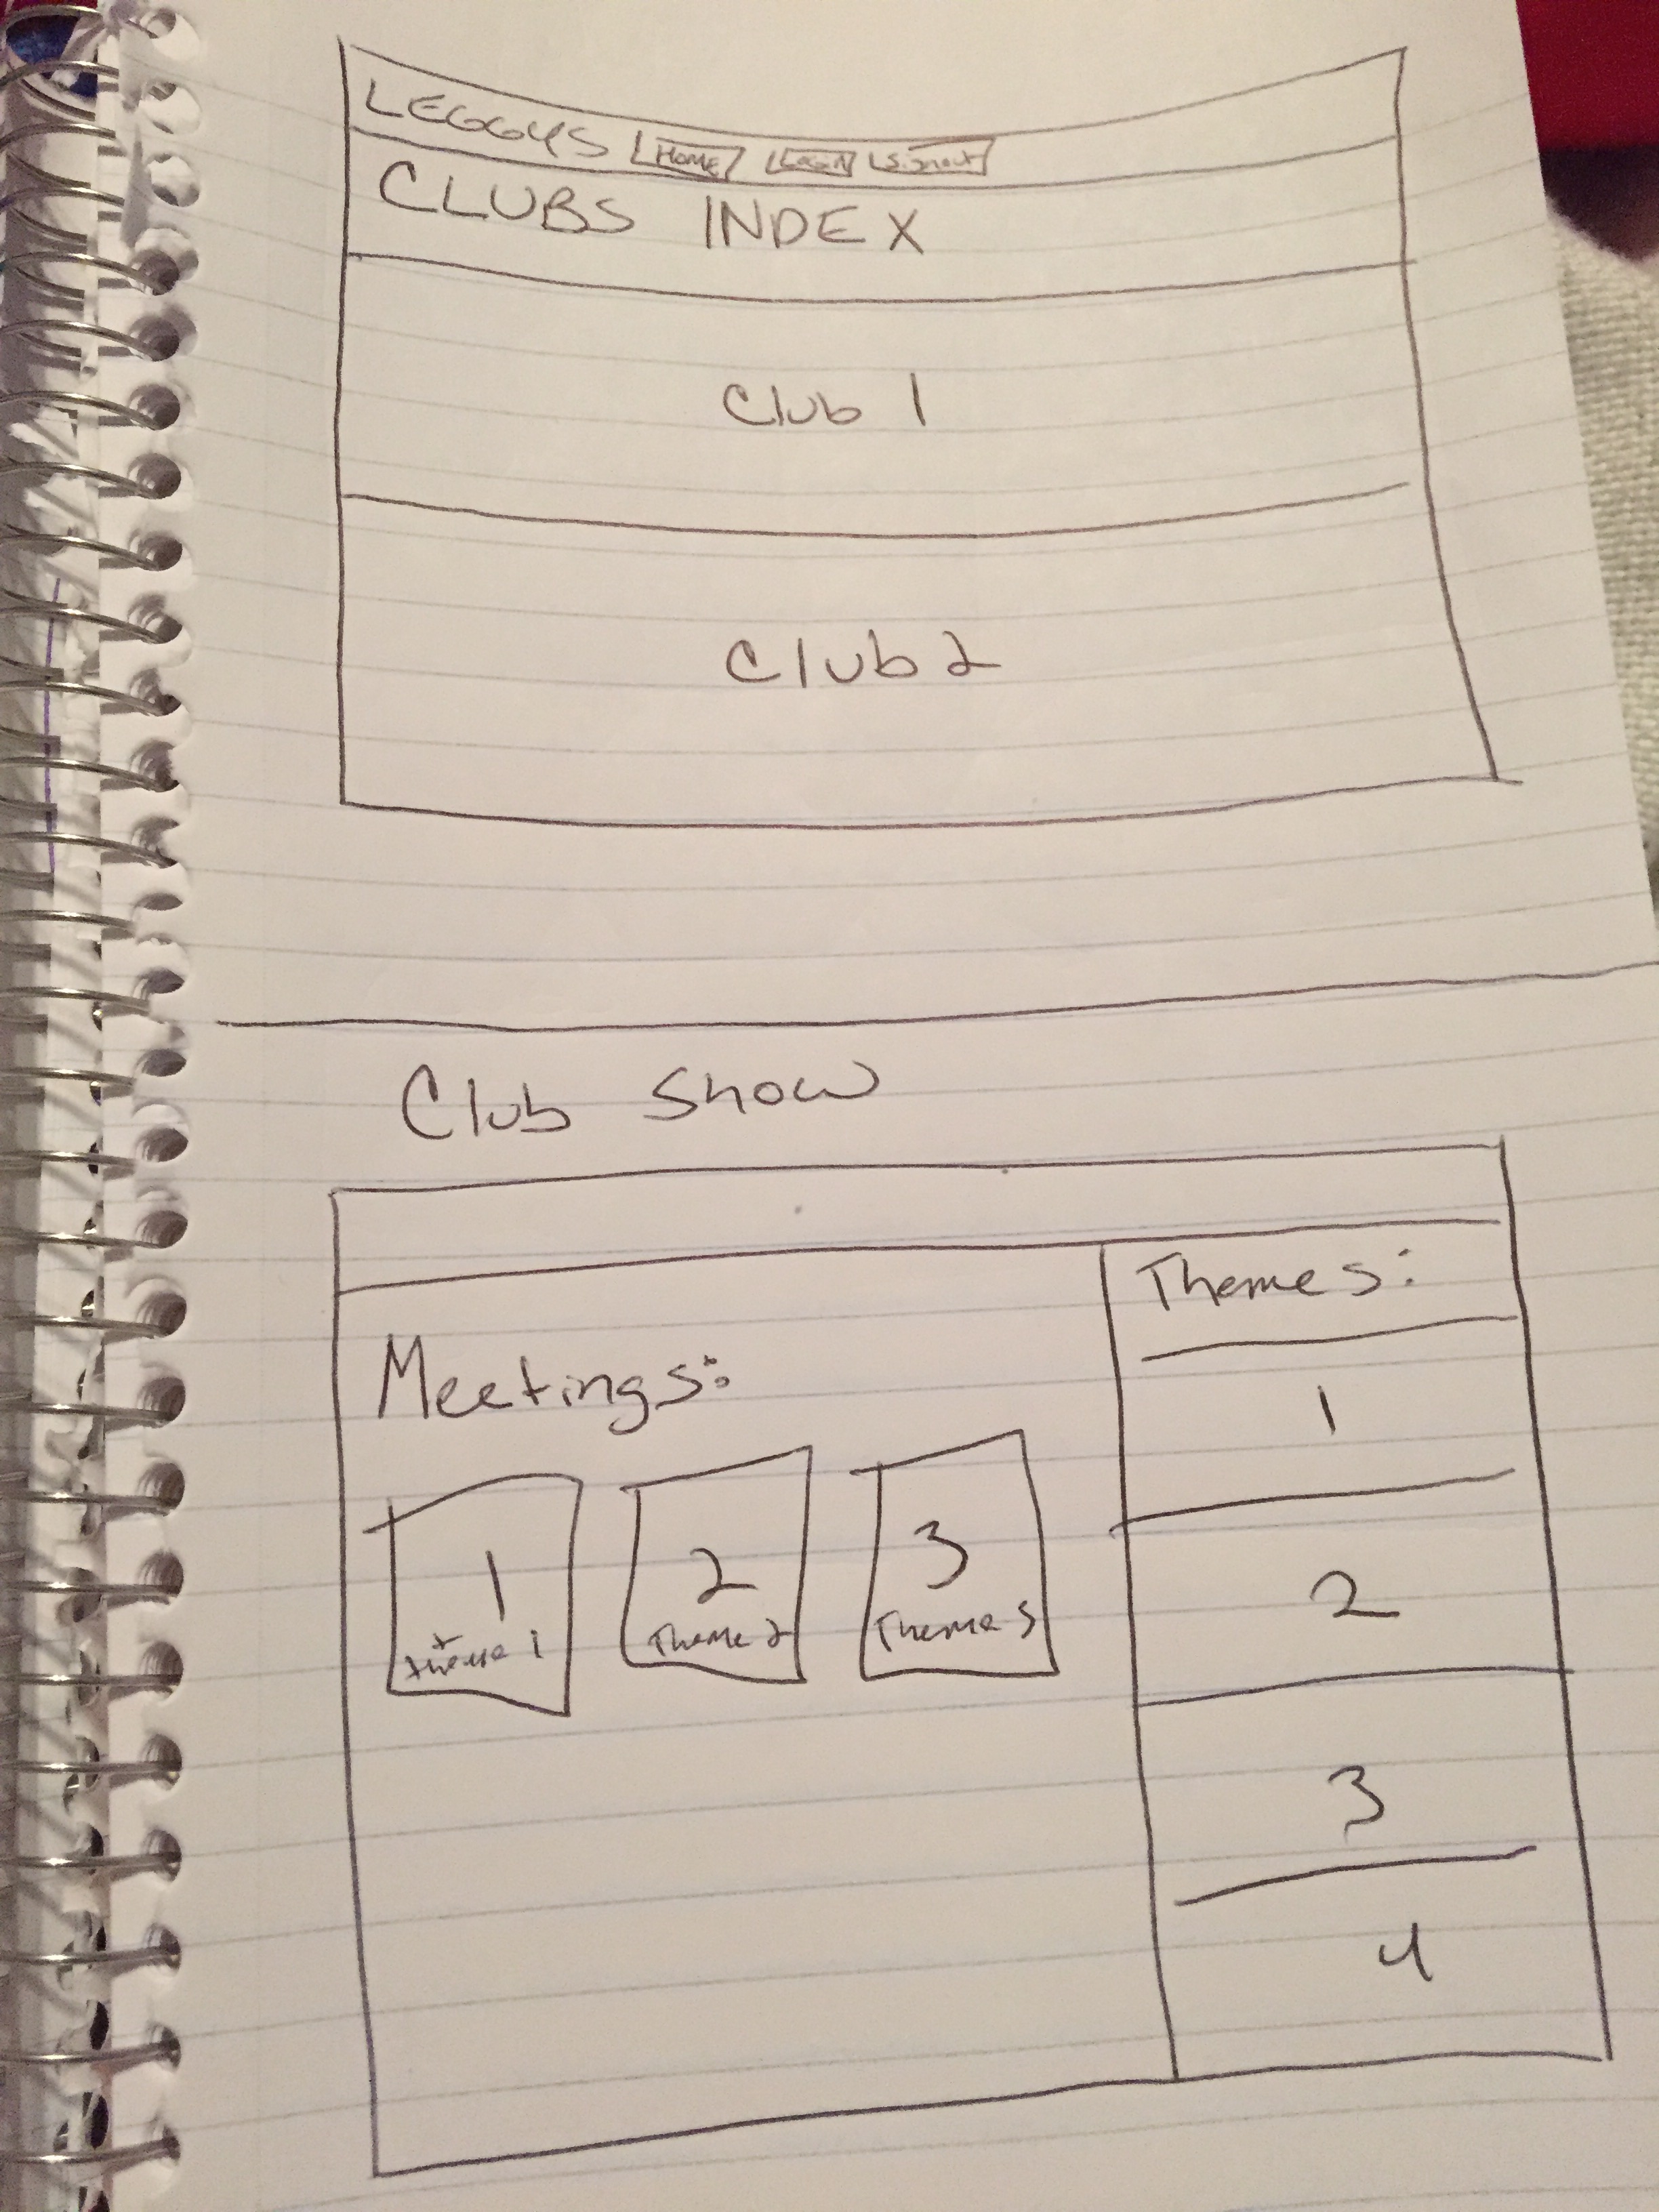 LEGGYS HOME Login Signout
CLUBS INDEX
Club 1
Club 2
Club Show
Themes:
Meetings:
1
1
2
3
theme 1
Theme 2
Theme 3
2
3
4